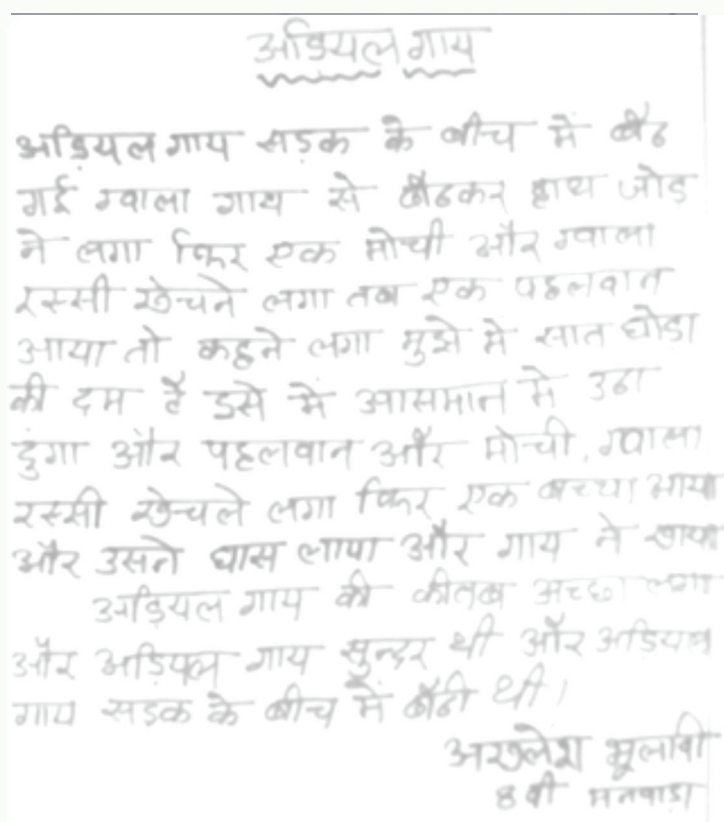 अडियल गाय
अड़ियल गाय सड़क के बीच में बैठ
गई ग्वाला गाय से बैठकर हाथ जोड़
ने लगा फिर एक मोची और ग्वाला
रस्सी खेचने लगा तब एक पहलवान
आया तो कहने लगा मुझे मे सात घोडा
की दम है इसे में आसमान मे उठा
दुंगा और पहलवान और मोची, ग्वाला
रस्सी खेचले लगा फिर एक बच्चा आया
और उसने घास लाया और गाय ने खाया
अड़ियल गाय की कीतब अच्छा लगा
और अड़ियल गाय सुन्दर थी और अडियल
गाय सड़क के बीच में बैठी थी।
अखलेश
8 वी